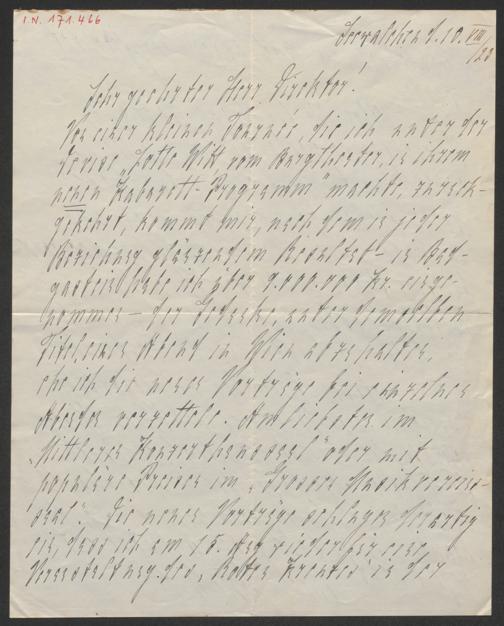 I.N. 171.466
Seewalchen d. 10. VIII/23
Sehr geehrter Herr Direktor!
Von einer kleinen Tournée, die ich unter der
Devise „Lotte Witt vom Burgtheater, in ihrem
neuen Kabarett-Programm" machte, zurück-
gekehrt, kommt mir, nach dem in jeder
Beziehung glänzendem Resultat - in Bad-
gastein habe ich über 9.000.000 Kr. einge-
nommen - der Gedanke, unter demselben
Titel, einen Abend in Wien abzuhalten,
ehe ich die neuen Vorträge bei einzelnen
Abenden verzettele. Am liebsten im
„Mittleren Konzerthaussaal" oder mit
populären Preisen im „Grossen Musikvereins-
saal". Die neuen Vorträge schlagen derartig
ein, dass ich am 15. Aug wieder für eine
Veranstaltung des „Roten Kreuzes" in der